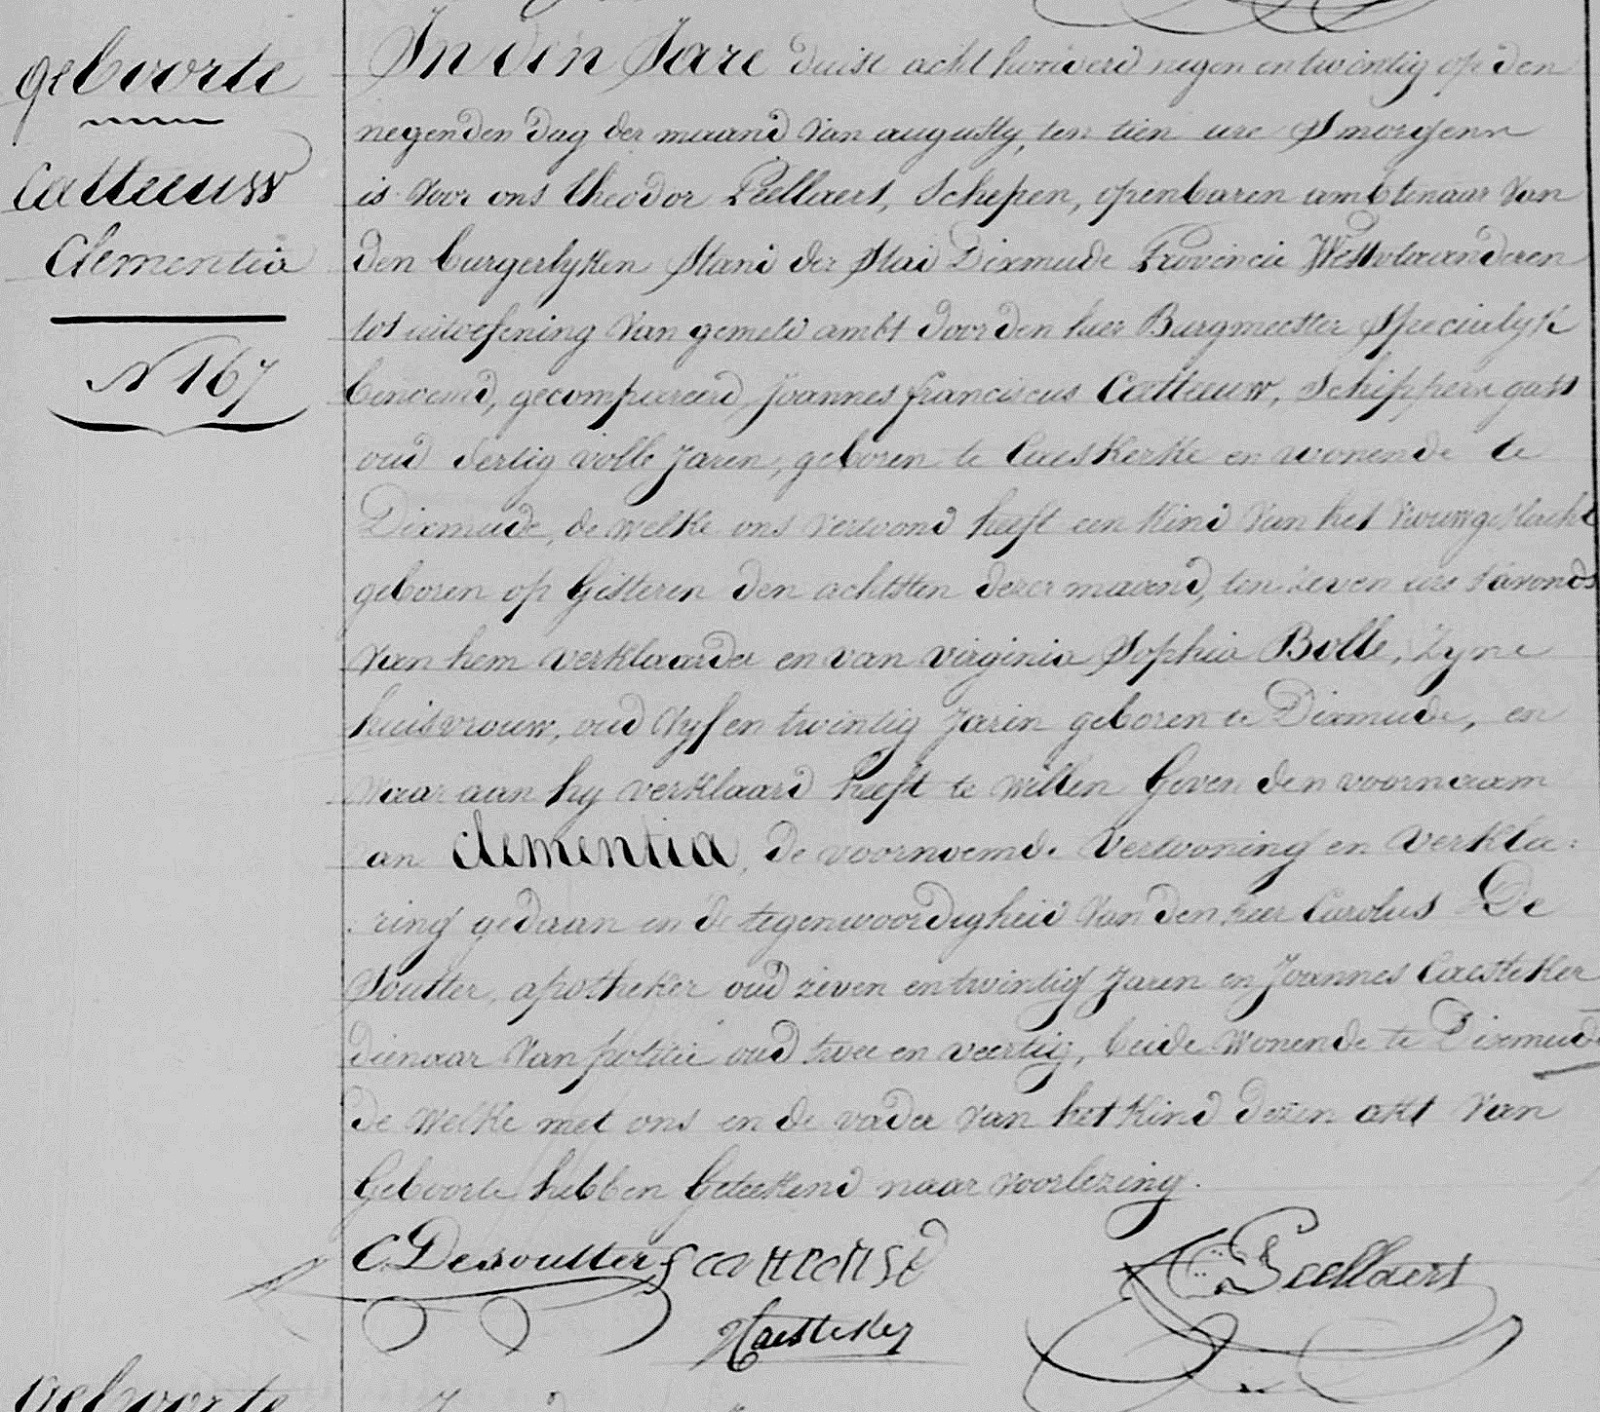 Geboorte
Catteeuw
Clementia
N 167
In den Jare duist acht honderd negen en twintig op den
negenden dag der maand van augusty, ten tien ure Smorgens
is voor ons theodor Peellaert, Schepen, openbaren ambtenaar van
den burgerlyken Stand der Stad Dixmude Provincie Westvlaanderen
tot uitoefening van gemeld ambt door den heer Burgmeester Specialyk
benoemd, gecompareerd, Joannes franciscus Catteeuw, Schippers gast
oud dertig volle Jaren, geboren te Caeskerke en wonende te
Dixmude, de welke ons vertoond heeft een kind van het vrouwgeslacht
geboren op Gisteren den achtsten dezer maend, ten zeven ure s'avonds
van hem verklaarder en van virginia Sophia Bolle, zyne
huisvrouw, oud Vyf en twintig Jaren geboren te Dixmude, en
waar aan hy verklaard heeft te willen Geven den voornaam
an Clementia, de voornoemde Vertooning en verkla:
:ring gedaan in de tegenwoordigheid van den heer Carolus De
Soutter, apotheker oud zeven en twintig Jaren en Joannes Caesteker
dienaar van politie oud twee en veertig, beide wonende te Dixmude
de welke met ons en de vader van het Kind dezen akt van
Geboorte hebben Geteekend naar voorlezing.
C. Desoutter
Peellaert
Caesteker
Geboorte